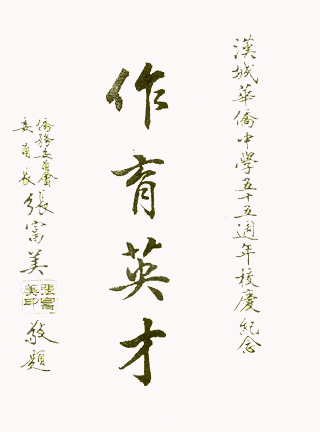 漢城華僑中學五十五週年校慶紀念
作育英才
僑務委員會
委員長張富美敬題
張富美印